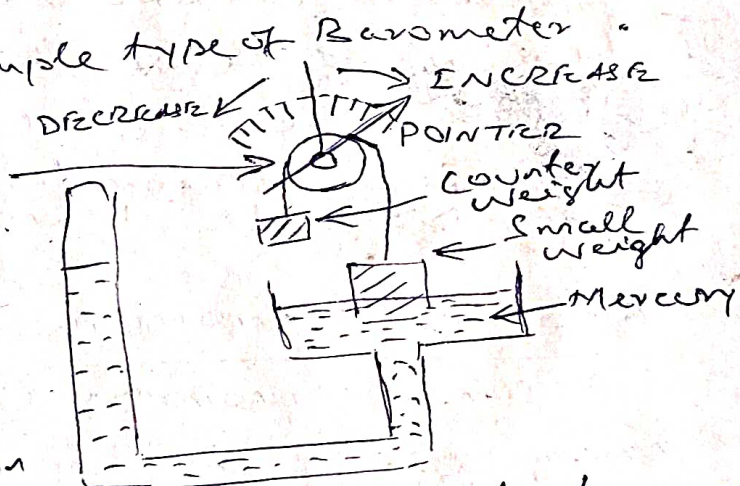 mple type of Barometer.
INCREASE
DECREASE
POINTER
Counter
weight
Small
weight
Mercury